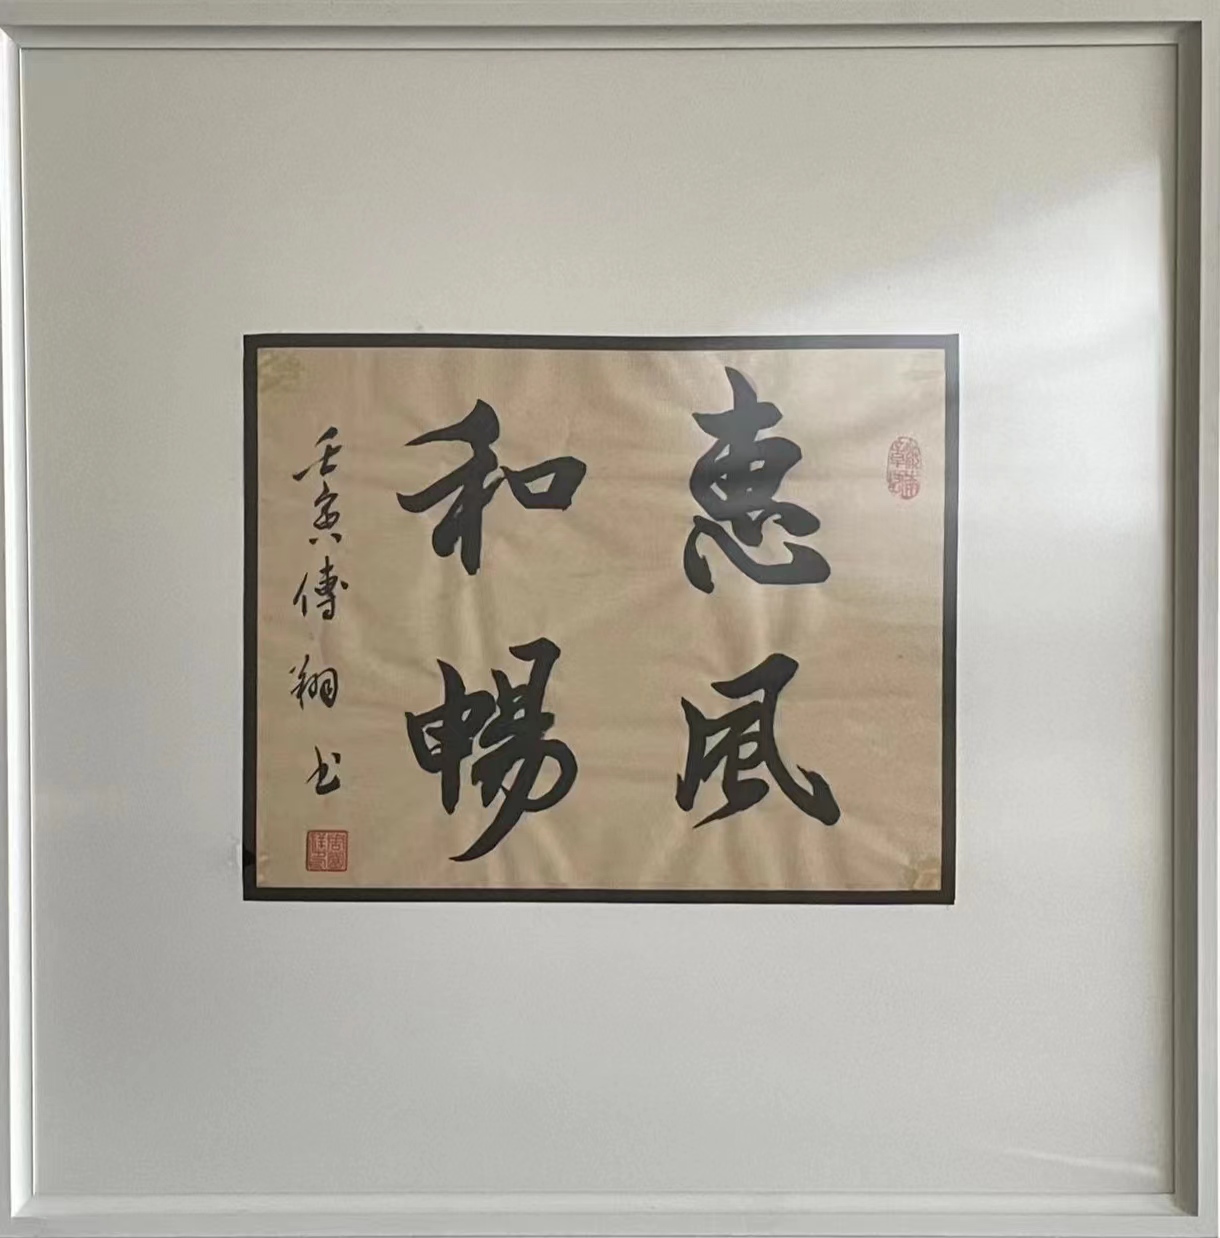 惠風
和暢
壬寅傅翔书